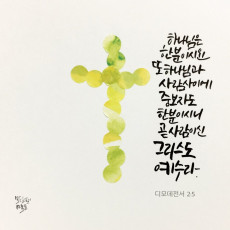 하나님은
한분이시요
또 하나님과
사람사이에
중보자도
한분이시니
곧 사람이신
그리스도
예수라-
디모데전서 2:5